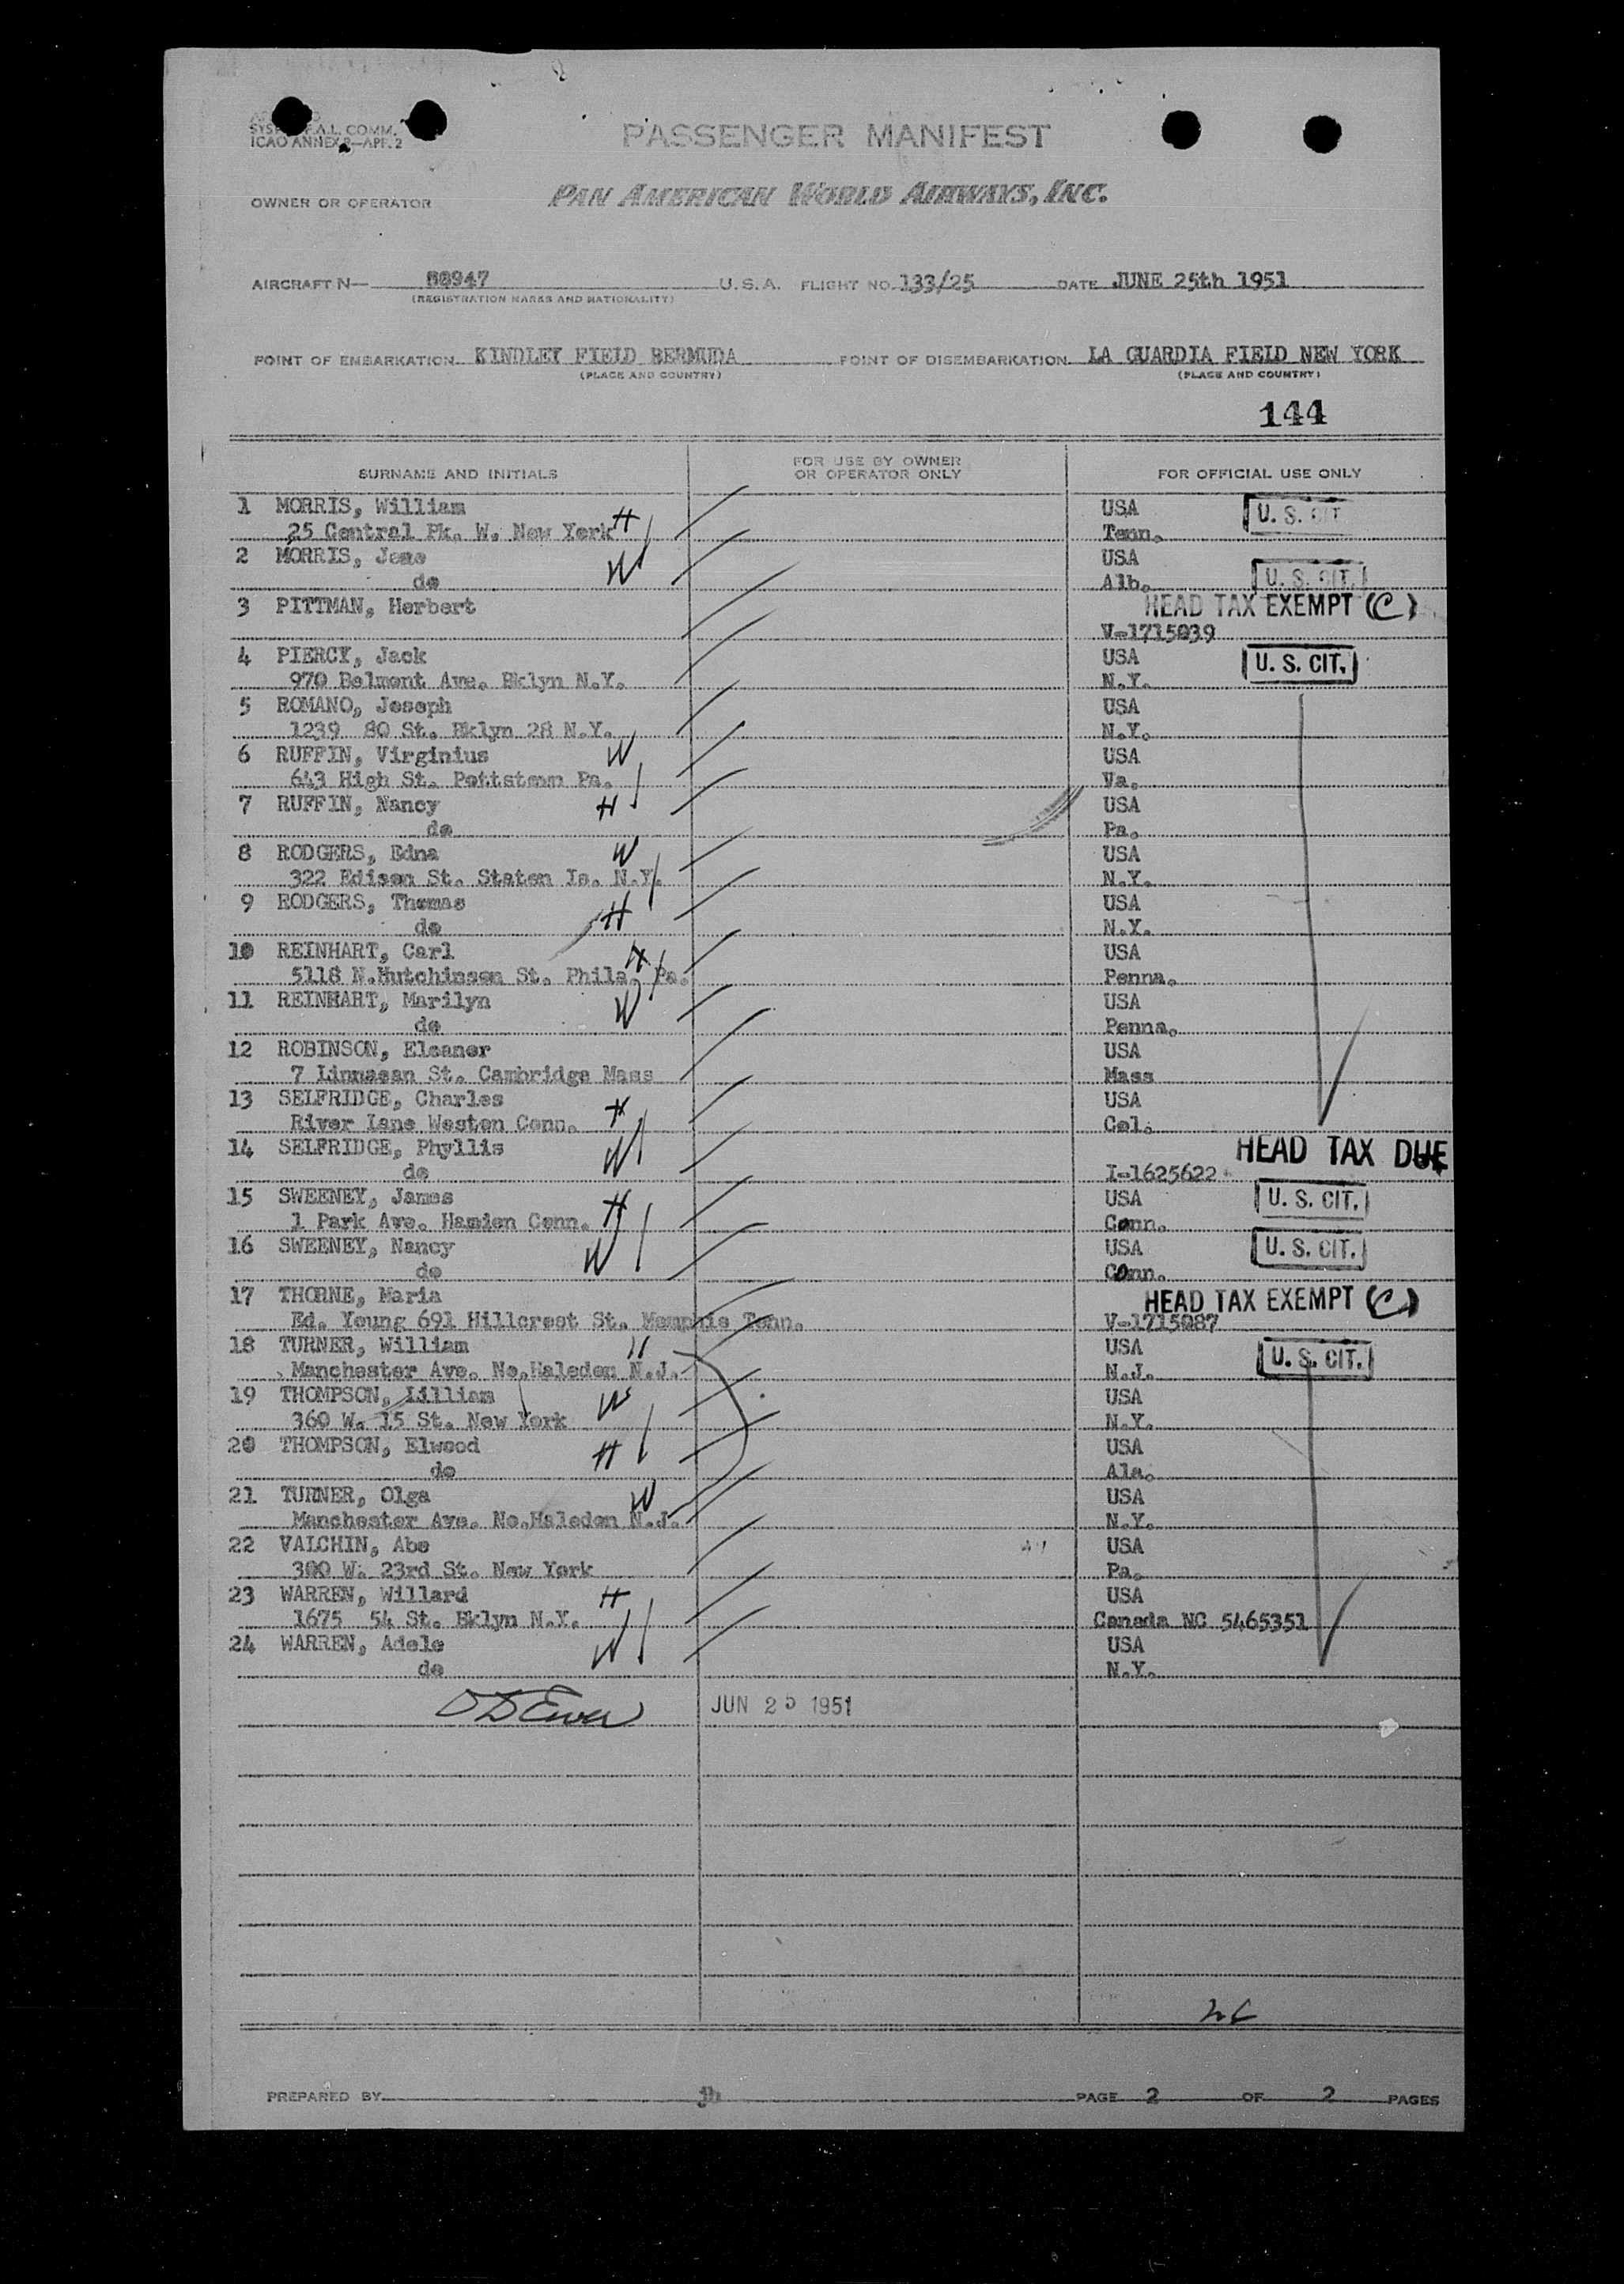 SYS F.A.L. COMM.
ICAO ANNEX 9—APP. 2
PASSENGER MANIFEST
OWNER OR OPERATOR PAN AMERICAN WORLD AIRWAYS, INC.
AIRCRAFT N— 88947 U.S.A. FLIGHT NO. 133/25 DATE JUNE 25th 1951
(REGISTRATION MARKS AND NATIONALITY)
POINT OF EMBARKATION KINDLEY FIELD BERMUDA POINT OF DISEMBARKATION LA GUARDIA FIELD NEW YORK
(PLACE AND COUNTRY) (PLACE AND COUNTRY)
144
SURNAME AND INITIALS FOR USE BY OWNER OR OPERATOR ONLY FOR OFFICIAL USE ONLY
1 MORRIS, William USA U. S. CIT
25 Central Pk. W. New York H Tenn.
2 MORRIS, Jene W USA
do Alb. U. S. CIT.
3 PITTMAN, Herbert HEAD TAX EXEMPT (C)
V-1715039
4 PIERCY, Jack USA U. S. CIT.
970 Belmont Ave. Bklyn N.Y. N.Y.
5 ROMANO, Joseph USA
1239 80 St. Bklyn 28 N.Y. N.Y.
6 RUFFIN, Virginius W USA
643 High St. Pottstown Pa. Va.
7 RUFFIN, Nancy H USA
do Pa.
8 RODGERS, Edna W USA
322 Edison St. Staten Is. N.Y. N.Y.
9 RODGERS, Thomas H USA
do N.Y.
10 REINHART, Carl H USA
5118 N.Hutchinson St. Phila. Pa. Penna.
11 REINHART, Marilyn W USA
do Penna.
12 ROBINSON, Eleanor USA
7 Linnaean St. Cambridge Mass Mass
13 SELFRIDGE, Charles H USA
River Lane Weston Conn. Cal.
14 SELFRIDGE, Phyllis W HEAD TAX DUE
do I-1625622
15 SWEENEY, James H USA U. S. CIT.
1 Park Ave. Hamden Conn. Conn.
16 SWEENEY, Nancy W USA U. S. CIT.
do Conn.
17 THORNE, Maria HEAD TAX EXEMPT (C)
Ed. Young 691 Hillcrest St. Memphis Tenn. V-1715087
18 TURNER, William H USA U. S. CIT.
Manchester Ave. No.Haledon N.J. N.J.
19 THOMPSON, Lilliam W USA
360 W. 15 St. New York N.Y.
20 THOMPSON, Elwood H USA
do Ala.
21 TURNER, Olga W USA
Manchester Ave. No.Haledon N.J. N.Y.
22 VALCHIN, Abe USA
300 W. 23rd St. New York Pa.
23 WARREN, Willard H USA
1675 54 St. Bklyn N.Y. Canada NC 5465351
24 WARREN, Adele W USA
do N.Y.
JUN 25 1951
PREPARED BY jh PAGE 2 OF 2 PAGES